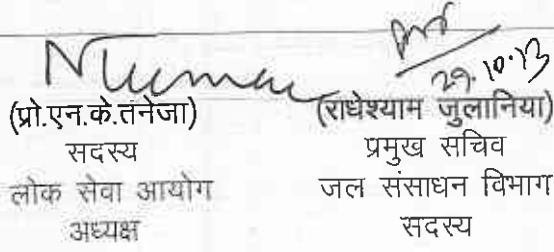 29.10.13
(प्रो.एन.के.तनेजा)
सदस्य
लोक सेवा आयोग
अध्यक्ष
(राधेश्याम जुलानिया)
प्रमुख सचिव
जल संसाधन विभाग
सदस्य